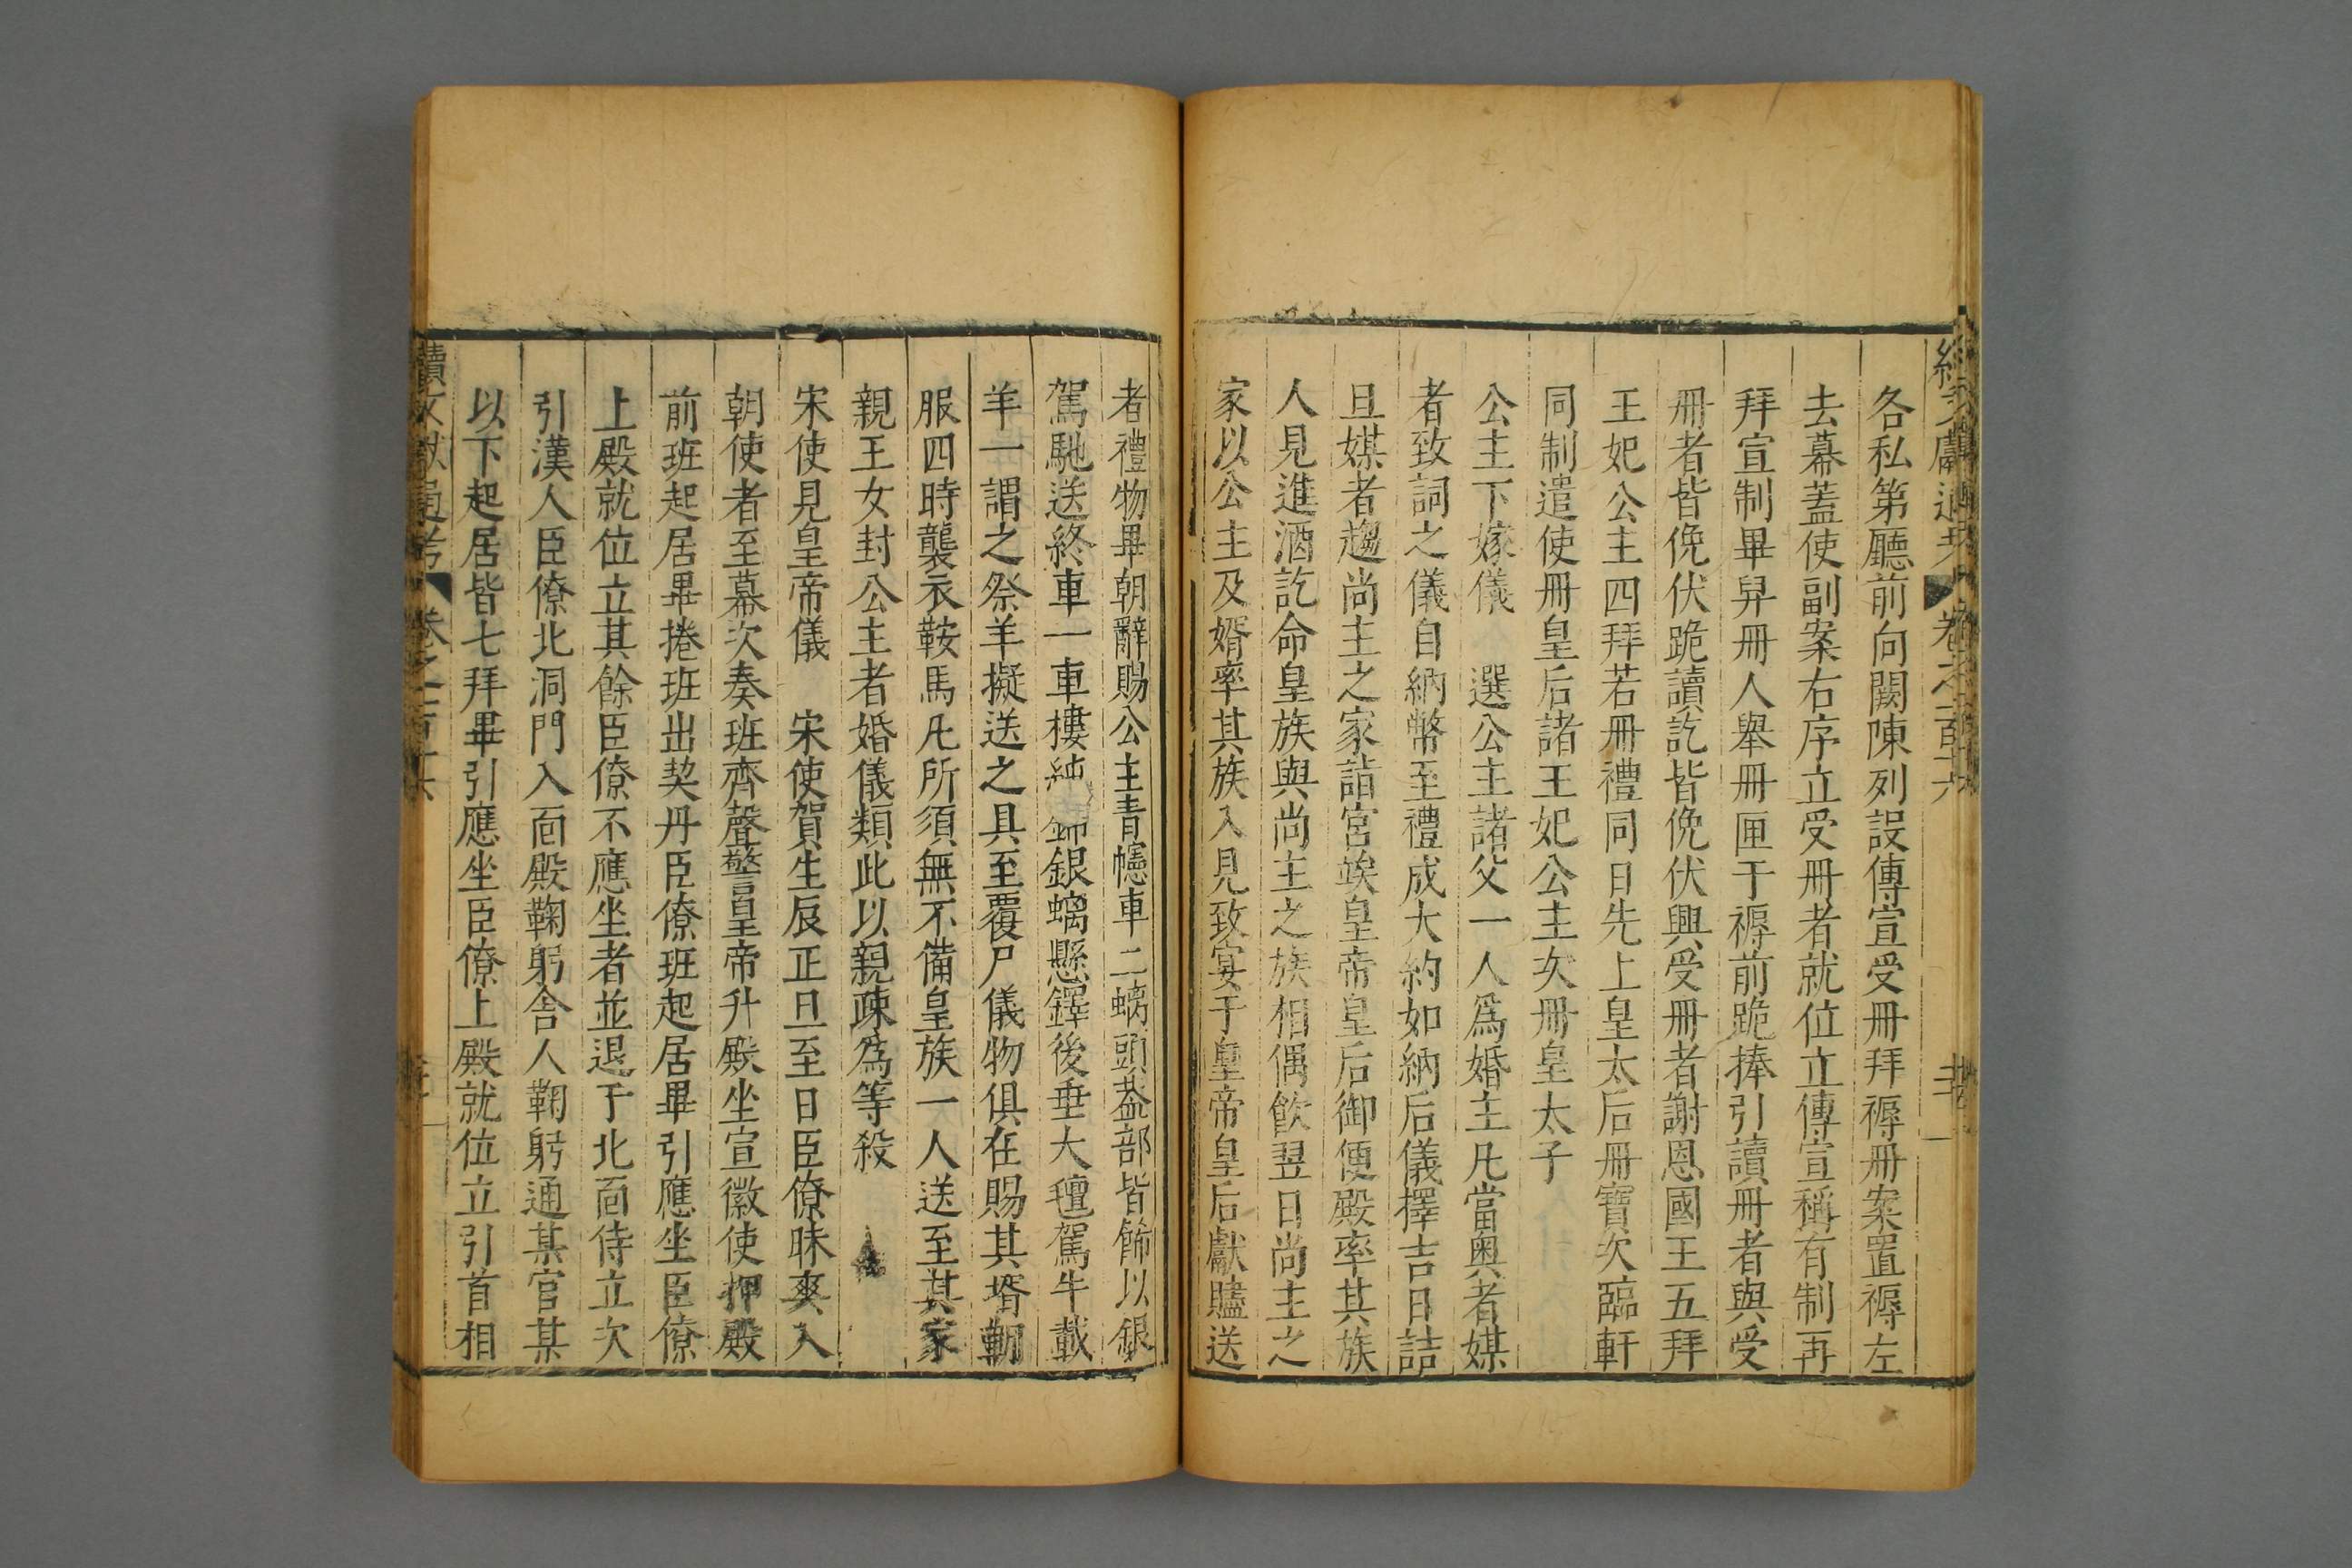 各私第廳前向闕陳列設傳宣受冊拜褥冊案置褥左
去幕蓋使副案右序立受冊者就位立傳宣稱有制再
拜宣制畢舁冊人舉冊匣于褥前跪捧引讀冊者與受
冊者皆俛伏跪讀訖皆俛伏興受冊者謝恩國王五拜
王妃公主四拜若冊禮同日先上皇太后冊寶次臨軒
同制遣使冊皇后諸王妃公主次冊皇太子
公主下嫁儀　選公主諸父一人爲婚主凡當奥者媒
者致詞之儀自納幣至禮成大約如納后儀擇吉日詰
旦媒者趨尚主之家詣宮竢皇帝皇后御便殿率其族
人見進酒訖命皇族與尚主之族相偶飲翌日尚主之
家以公主及婿率其族入見致宴于皇帝皇后獻贐送
者禮物畢朝辭賜公主青幰車二螭頭葢部皆飾以銀
駕馳送終車一車樓純錦銀螭懸鐸後垂大氊駕牛載
羊一謂之祭羊擬送之具至覆尸儀物俱在賜其壻朝
服四時襲衣鞍馬凡所須無不備皇族一人送至其家
親王女封公主者婚儀類此以親疎爲等殺
宋使見皇帝儀　宋使賀生辰正旦至日臣僚昧爽入
朝使者至幕次奏班齊聲警皇帝升殿坐宣徽使押殿
前班起居畢捲班出契丹臣僚班起居畢引應坐臣僚
上殿就位立其餘臣僚不應坐者並退于北面侍立次
引漢人臣僚北洞門入面殿鞠躬舍人鞠躬通某官某
以下起居皆七拜畢引應坐臣僚上殿就位立引首相